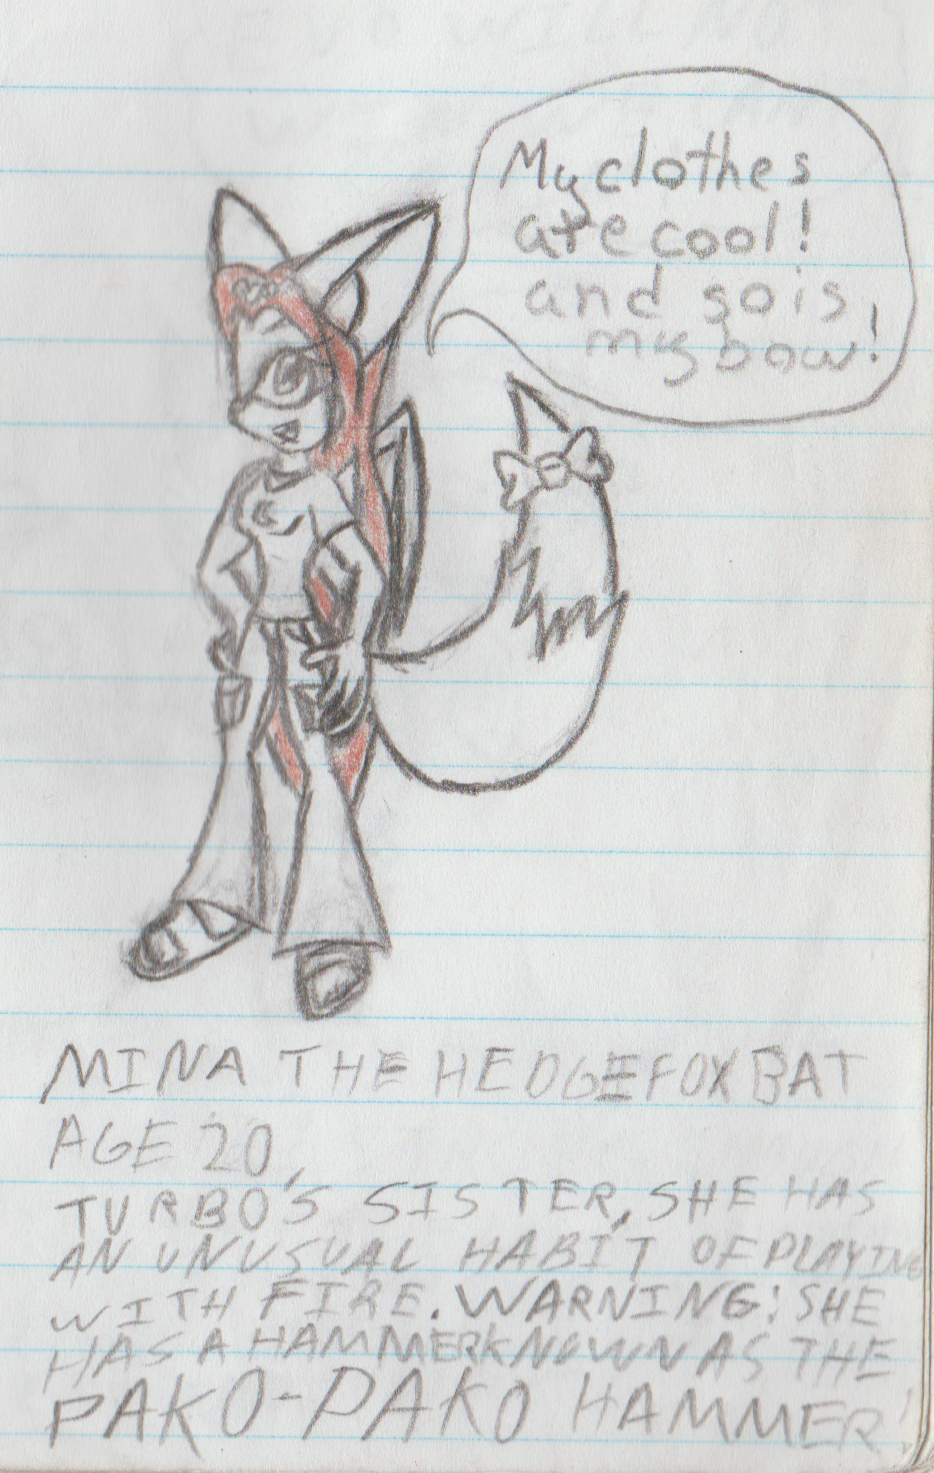 My clothes
are cool!
and so is
my bow!
MINA THE HEDGEFOXBAT
AGE 20,
TURBO'S SISTER, SHE HAS
AN UNUSUAL HABIT OF PLAYING
WITH FIRE. WARNING: SHE
HAS A HAMMER KNOWN AS THE
PAKO-PAKO HAMMER!